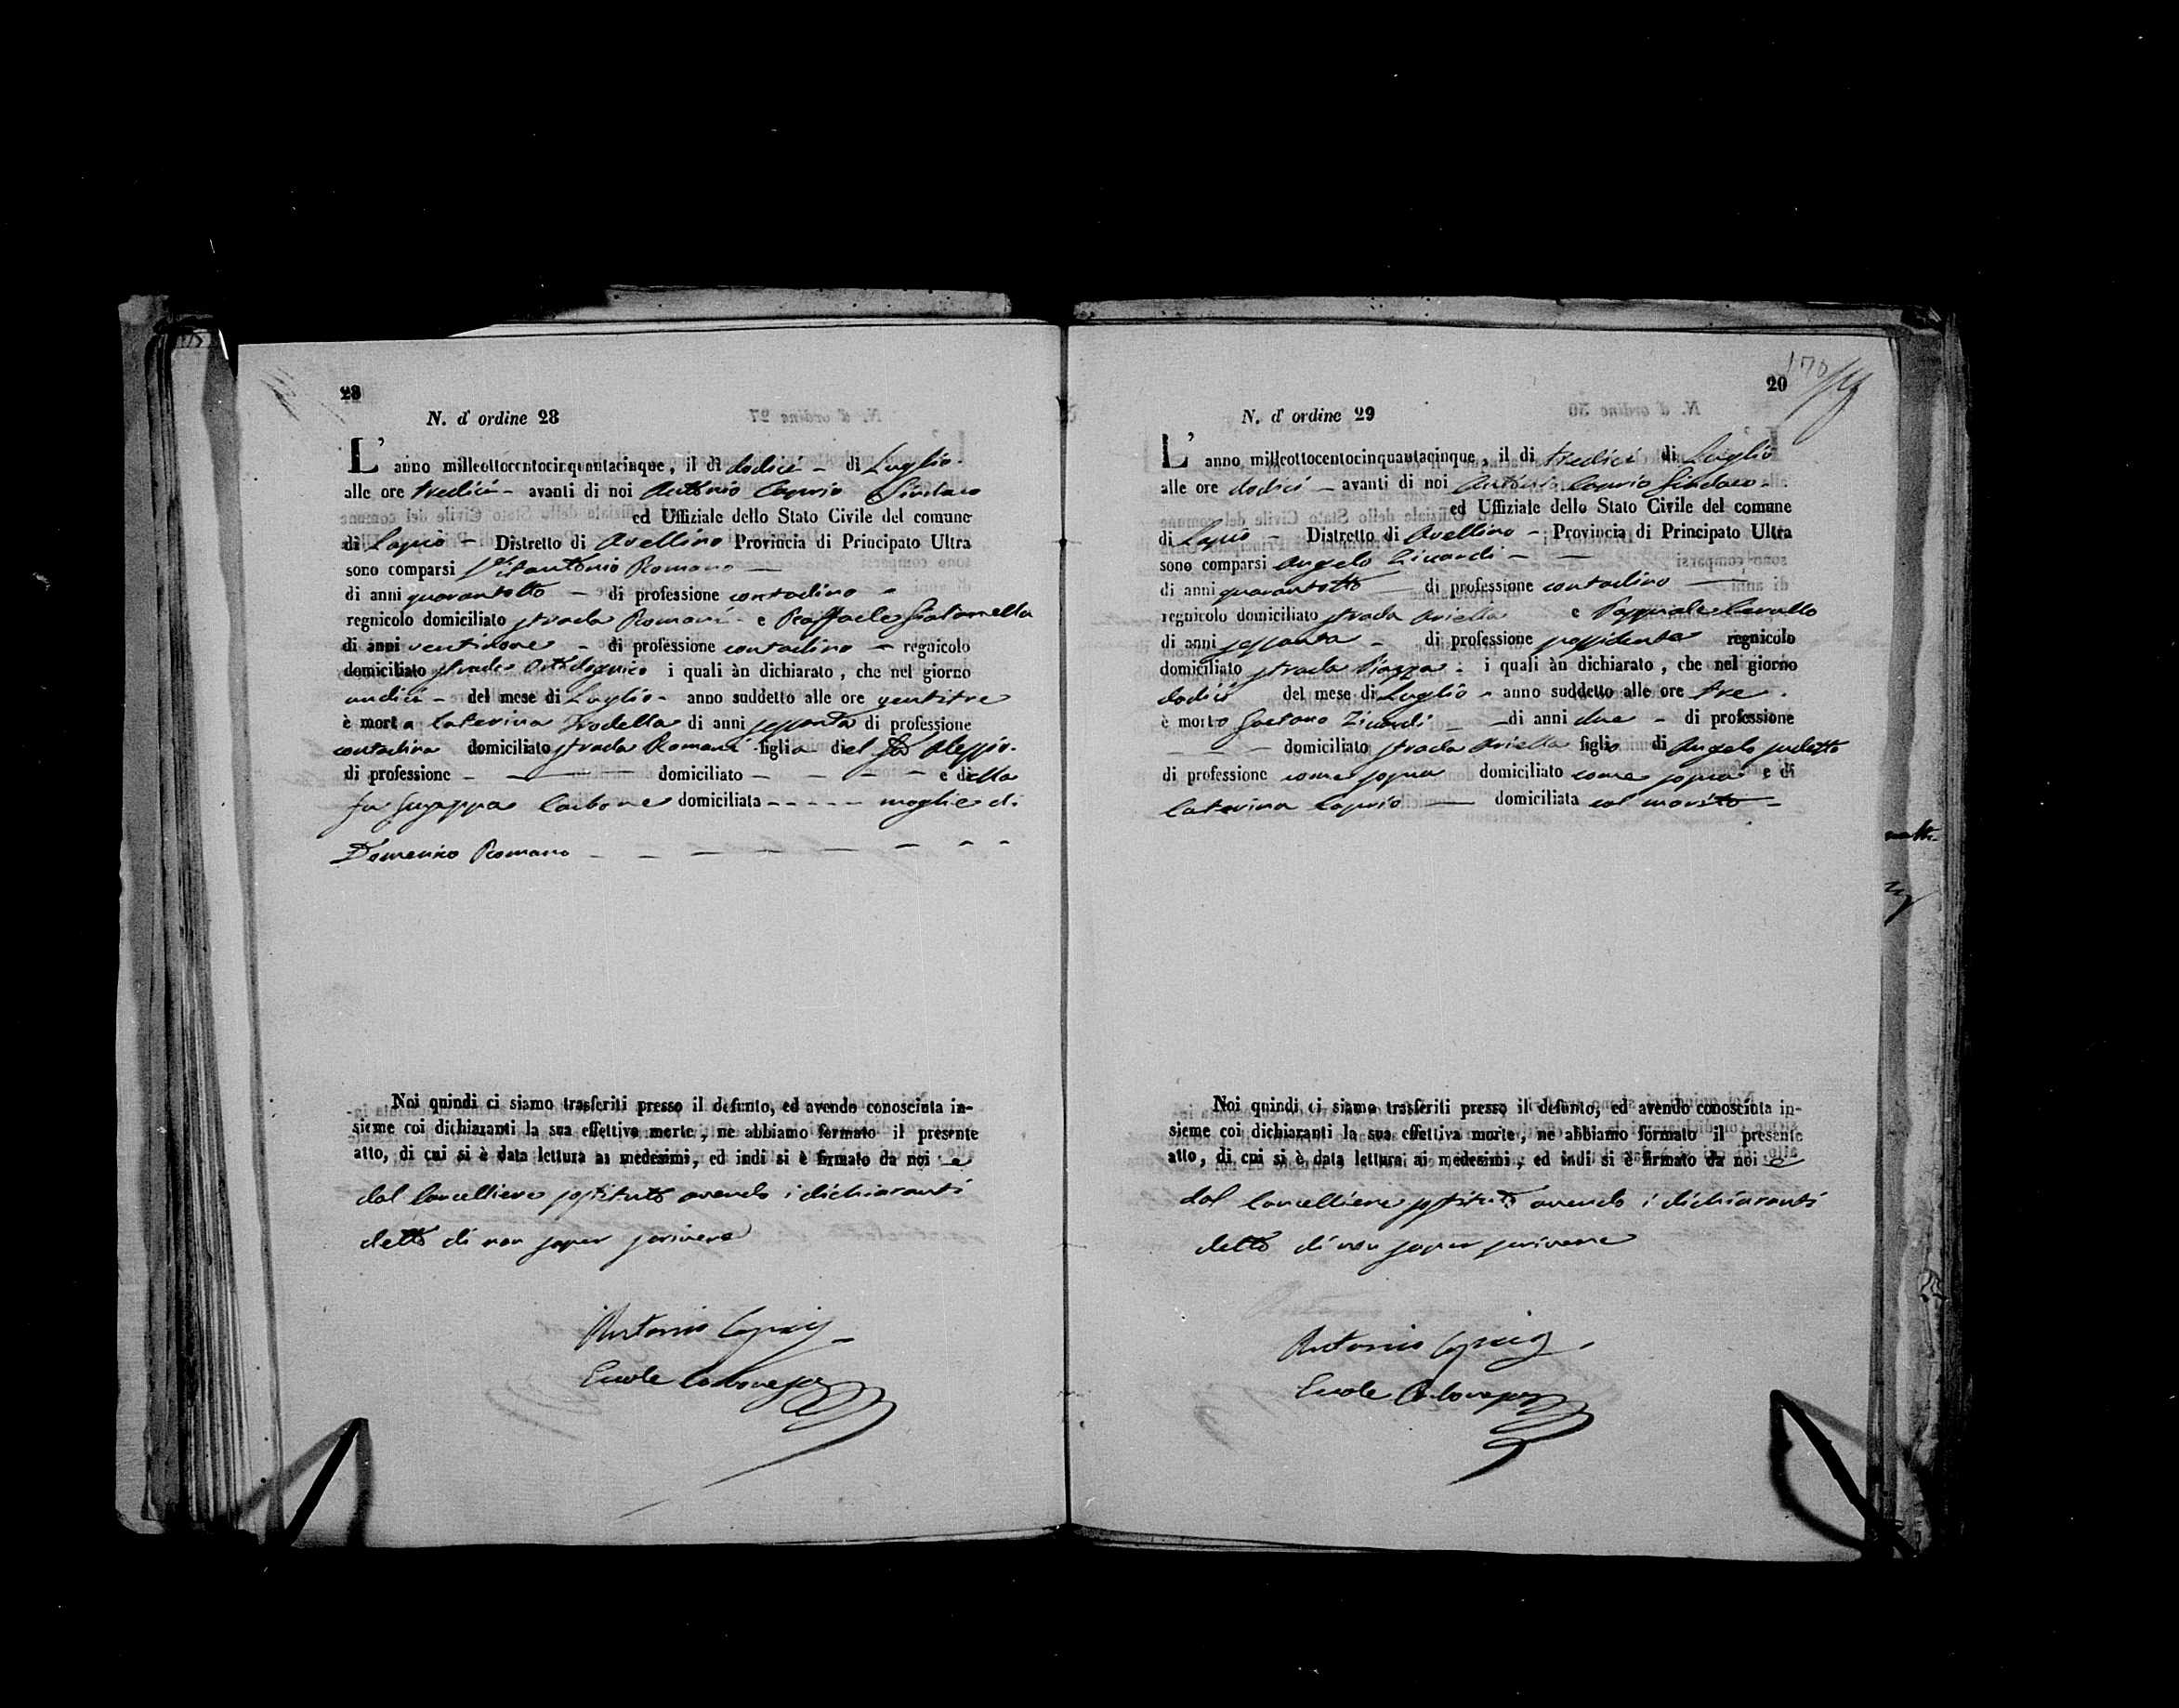 28
N. d' ordine 28
L' anno millecottocentocinquantacinque, il dì dodici - di Luglio -
alle ore tredici - avanti di noi Antonio Caprio Sindaco
ed Uffiziale dello Stato Civile del comune
di Lapio - Distretto di Avellino Provincia di Principato Ultra
sono comparsi Vitantonio Romano -
di anni quarantotto - di professione contadino -
regnicolo domiciliato strada Romani - e Raffaele
di anni ventinove - di professione contadino - regnicolo
domiciliato strada i quali àn dichiarato, che nel giorno
undici - del mese di Luglio - anno suddetto alle ore ventitre
è morta Caterina Trodella di anni sessanta di professione
contadina domiciliato strada Romani figlia del fu Alessio -
di professione - - domiciliato - - - - e della
fu Giuseppa Carbone domiciliata - - - - moglie di
Domenico Romano - - - - - - - -
Noi quindi ci siamo trasferiti presso il defunto, ed avendo conosciuta in-
sieme coi dichiaranti la sua effettiva morte, ne abbiamo formato il presente
atto, di cui si è data lettura ai medesimi, ed indi si è firmato da noi e
dal Cancelliere sostituto avendo i dichiaranti
detto di non saper scrivere
Antonio Caprio
Ercole
170
20
N. d' ordine 29
L' anno millecottocentocinquantacinque, il dì tredici di Luglio
alle ore dodici - avanti di noi Antonio Caprio Sindaco -
ed Uffiziale dello Stato Civile del comune
di Lapio - Distretto di Avellino - Provincia di Principato Ultra
sono comparsi Angelo Ziccardi - -
di anni quarantotto - di professione contadino -
regnicolo domiciliato strada Ariella e Pasquale Carullo
di anni sessanta - di professione possidente regnicolo
domiciliato strada Piazza - i quali àn dichiarato, che nel giorno
dodici del mese di Luglio - anno suddetto alle ore tre -
è morto Gaetano Ziccardi - - di anni due - di professione
- - domiciliato strada Ariella figlio di Angelo sudetto
di professione come sopra domiciliato come sopra e di
Caterina Caprio - domiciliata col marito -
Noi quindi ci siamo trasferiti presso il defunto, ed avendo conosciuta in-
sieme coi dichiaranti la sua effettiva morte, ne abbiamo formato il presente
atto, di cui si è data lettura ai medesimi, ed indi si è firmato da noi e
dal Cancelliere sostituto avendo i dichiaranti
detto di non saper scrivere
Antonio Caprio
Ercole